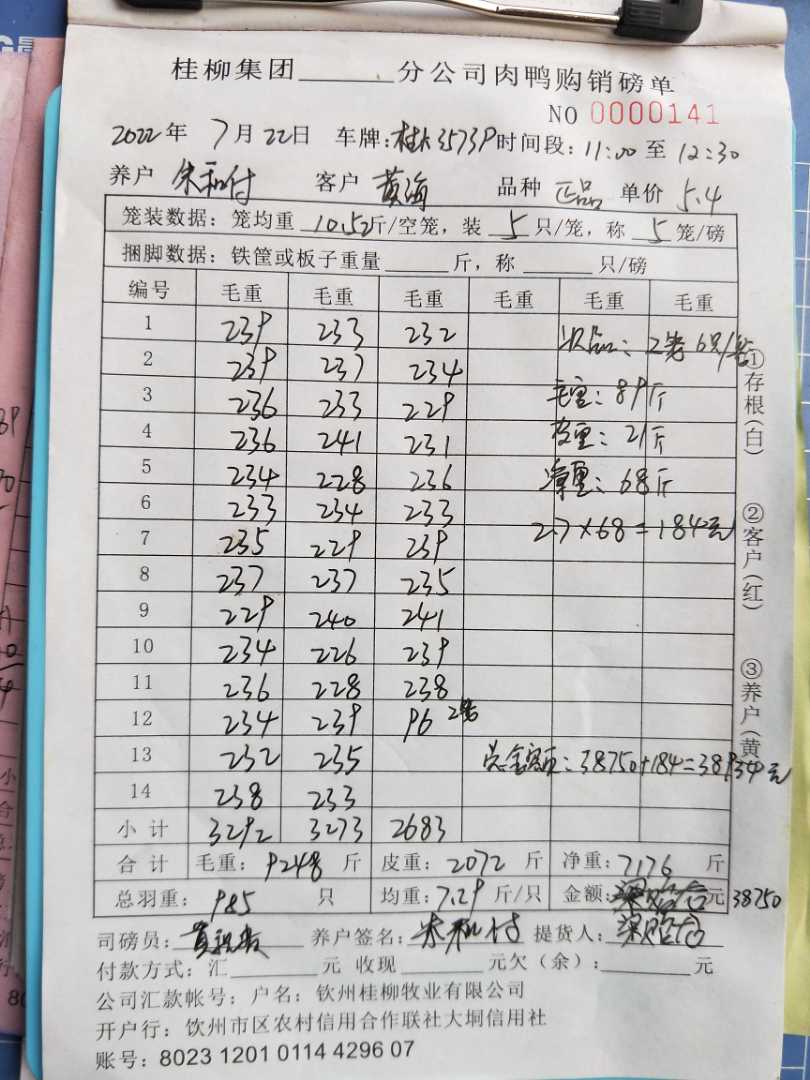 桂柳集团______分公司肉鸭购销磅单
NO 0000141
2022年 7月22日 车牌:桂K3573P 时间段:11:00至12:30
养户 朱和付 客户 黄海 品种 正品 单价 5.4
笼装数据:笼均重 10.52斤/空笼,装 5 只/笼,称 5 笼/磅
捆脚数据:铁筐或板子重量______斤,称______只/磅
编号 毛重 毛重 毛重 毛重 毛重 毛重
1 239 233 232 次品:2笼 6只/笼
2 239 237 234
3 236 233 229 毛重:89斤
4 236 241 231 皮重:21斤
5 234 228 236 净重:68斤
6 233 234 233
7 235 229 239 2.7×68=184元
8 237 237 235
9 229 240 241
10 234 226 239
11 236 228 238
12 234 239 96 2笼
13 232 235 总金额:38750+184=38934元
14 238 233
小计 3292 3273 2683
合计 毛重:9248斤 皮重:2072斤 净重:7176斤
总羽重:985只 均重:7.29斤/只 金额: 元 38750
司磅员: 养户签名:朱和付 提货人:
付款方式:汇______元 收现______元欠(余):______元
公司汇款帐号:户名:钦州桂柳牧业有限公司
开户行:钦州市区农村信用合作联社大垌信用社
账号:8023 1201 0114 4296 07
①存根(白) ②客户(红) ③养户(黄